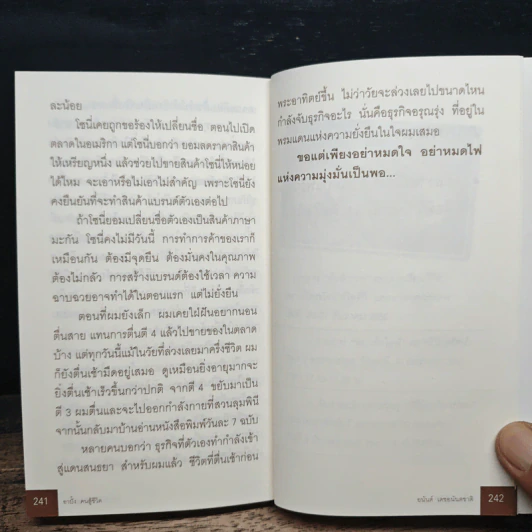 ละน้อย
โซนี่เคยถูกขอร้องให้เปลี่ยนชื่อ ตอนไปเปิด
ตลาดในอเมริกา แต่โซนี่บอกว่า ยอมลดราคาสินค้า
ให้เหรียญหนึ่ง แล้วช่วยไปขายสินค้าโซนี่ให้หน่อย
ได้ไหม จะเอาหรือไม่เอาไม่สำคัญ เพราะโซนี่ยัง
คงยืนยันที่จะทำสินค้าแบรนด์ตัวเองต่อไป
ถ้าโซนี่ยอมเปลี่ยนชื่อตัวเองเป็นสินค้าภาษา
มะกัน โซนี่คงไม่มีวันนี้ การทำการค้าของเราก็
เหมือนกัน ต้องมีจุดยืน ต้องมั่นคงในคุณภาพ
ต้องไม่กลัว การสร้างแบรนด์ต้องใช้เวลา ความ
ฉาบฉวยอาจทำได้ในตอนแรก แต่ไม่ยั่งยืน
ตอนที่ผมยังเล็ก ผมเคยใฝ่ฝันอยากนอน
ตื่นสาย แทนการตื่นตี 4 แล้วไปขายของในตลาด
บ้าง แต่ทุกวันนี้แม้ในวัยที่ล่วงเลยมาครึ่งชีวิต ผม
ก็ยังตื่นเช้ามืดอยู่เสมอ ดูเหมือนยิ่งอายุมากจะ
ยิ่งตื่นเช้าเร็วขึ้นกว่าปกติ จากตี 4 ขยับมาเป็น
ตี 3 ผมตื่นและจะไปออกกำลังกายที่สวนลุมพินี
จากนั้นกลับมาบ้านอ่านหนังสือพิมพ์วันละ 7 ฉบับ
หลายคนบอกว่า ธุรกิจที่ตัวเองทำกำลังเข้า
สู่แดนสนธยา สำหรับผมแล้ว ชีวิตที่ตื่นเช้าก่อน
241 คาถั่ว คนสู้ชีวิต
พระอาทิตย์ขึ้น ไม่ว่าวัยจะล่วงเลยไปขนาดไหน
กำลังจับธุรกิจอะไร นั่นคือธุรกิจอรุณรุ่ง ที่อยู่ใน
พรมแดนแห่งความยั่งยืนในใจผมเสมอ
ขอแต่เพียงอย่าหมดใจ อย่าหมดไฟ
แห่งความมุ่งมั่นเป็นพอ...
242